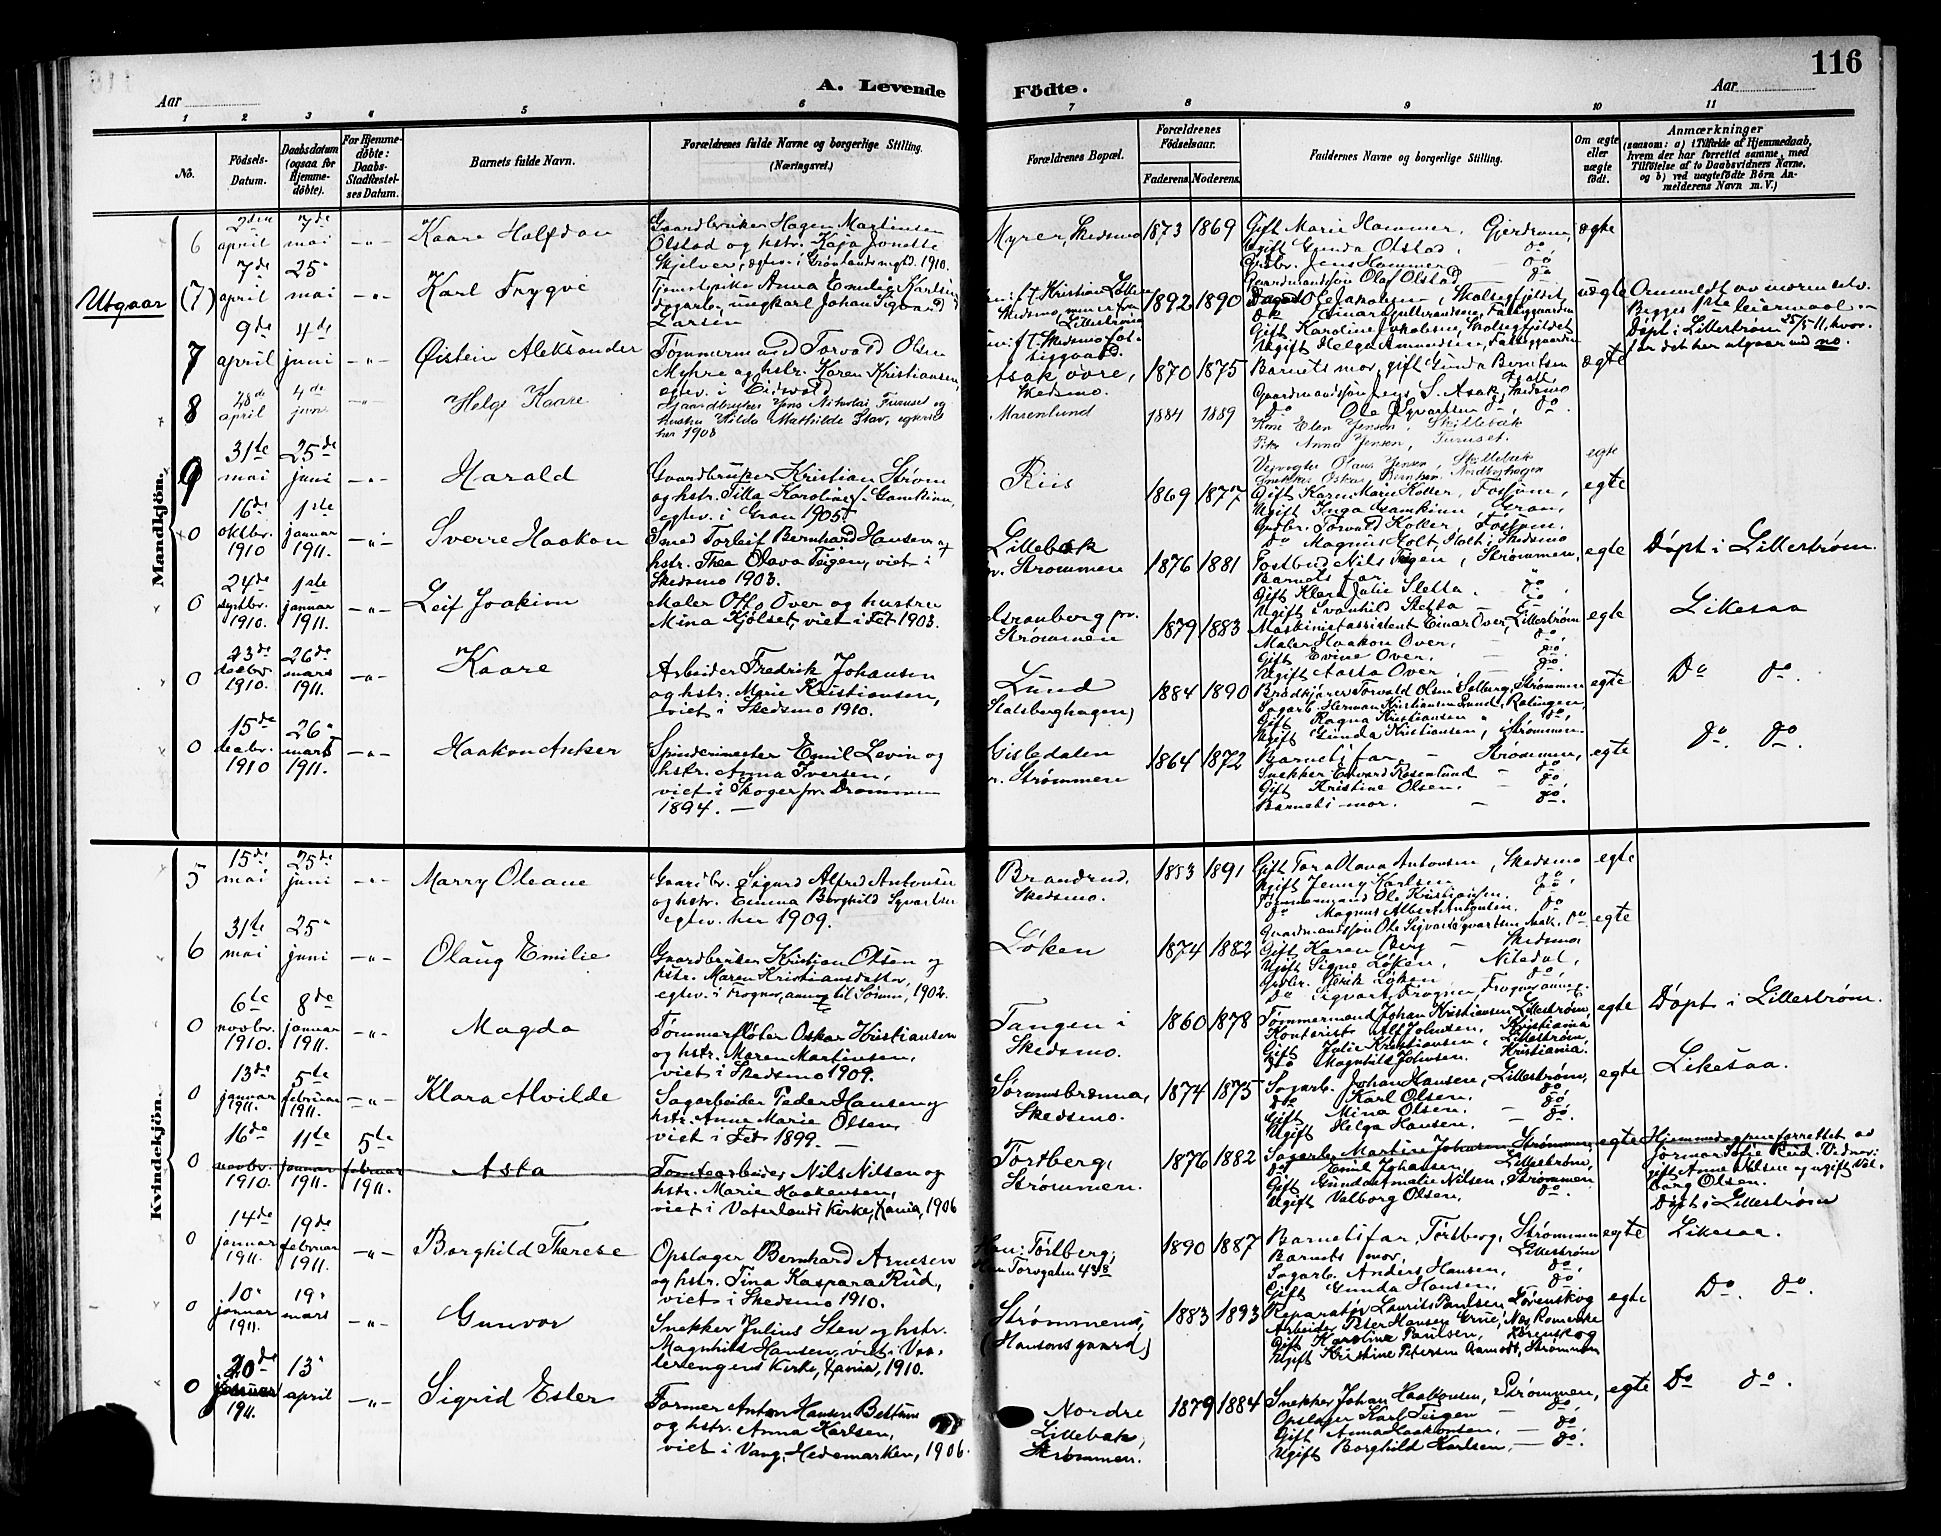 116
A. Levende Födte.
Aar
Aar
1 2 3 4 5 6 7 8 9 10 11
No.
Födsels-Datum.
Daabsdatum (ogsaa for Hjemmedöbte).
For Hjemmedöbte: Daabs-Stadfæstelses Datum.
Barnets fulde Navn.
Forældrenes fulde Navne og borgerlige Stilling. (Næringsvei.)
Forældrenes Bopæl.
Forældrenes Födselsaar.
Faderens. Moderens.
Faddernes Navne og borgerlige Stilling.
Om ægte eller uægte födt.
Anmærkninger
(saasom: a) i Tilfælde af Hjemmedaab, hvem der har forrettet samme, med Tilföielse af to Daabsvidners Navne, og b) ved uægtefödte Börn Anmelderens Navn m. V.)
Mandkjön.
6 2den april 7de mai Kaare Halfdan
Gaardbruker Hagen Martinsen
Olstad og hstr. Kaja Jonette
Myrer, Skedsmo 1873 1869
Gift Marie Hammer, Gjerdrum,
Ugift Gunda Olstad, do
Grdbr. Jens Hammer do
Gaardmandssøn Olaf Olstad do
egte
Utgaar (7) 7de april 25 mai Karl Trygve
Tjenestepike Anna Emilie Karlsen
ungkarl Johan Sigvard
Larsen
1892 1890
Gift Karoline Jakobsen,
Ugift Helga Amundsen,
uegte
Døpt i Lillestrøm 25/5 11, hvor-
for det her utgaar ved no.
7 9de april 4de juni Øistein Aleksander
Tømmermand Torvald Olsen
Myhre og hstr. Karen Kristiansen,
egtev. i Eidsvold
Asak øvre,
Skedsmo.
1870 1875
Barnets mor, gift Gunda Berntsen
egte
8 28de april 4de juni Helge Kaare
Gaardbruker Jens Nikolai Furuset og
hustru Hilda Mathilde Stav, egteviet
her 1908
Marenlund 1884 1889
Kone Elen Jensen, Skillebæk
Pike Anna Jensen, Furuset.
egte
9 31te mai 25de juni Harald
Gaardbruker Kristian Strøm
og hstr. Tilla Karoline Gamkinn,
egtev. i Gran 1905
Riis 1869 1877
Gift Karen Marie Koller, Fossum,
Ugift Inga Gamkinn, Gran,
Grdbr. Torvald Koller, Fossum.
do Magnus Holt, Holt i Skedsmo
egte
0 16de oktbr. 1910 1ste januar 1911. Sverre Haakon
Smed Torleif Bernhard Hansen og
hstr. Thea Olava Teigen, viet i
Skedsmo 1903.
Lillebæk
pr. Strømmen
1876 1881
Postbud Nils Teigen, Strømmen,
Barnets far,
Gift Klara Julie Sletta. do
Ugift Svanhild Sletta do
egte
Døpt i Lillestrøm.
0 24de septbr. 1910. 1ste januar 1911. Leif Joakim
Maler Otto Over og hustru
Mina Kjølset, viet i Fet 1903.
Strømmen
1879 1883
Maskinistassistent Einar Over, Lillestrøm
Maler Haakon Over, do
Gift Evine Over, do
Ugift Aasta Over, do
egte
Likesaa
0 23de decbr. 1910. 26de mars 1911. Kaare
Arbeider Fredrik Johansen
og hstr. Marie Kristiansen,
viet i Skedsmo 1910.
Lund
Stalsberghagen)
1884 1890
Brødkjører Torvald Olsen Solberg, Strømmen
Sagarb. Herman Kristiansen Lund, Rælingen,
Gift Ragna Kristiansen " do,
Ugift Gunda Kristiansen, Strømmen.
egte
Do do.
0 15de decbr. 1910 26" mars 1911. Haakon Anker
Spindemester Emil Levin og
hstr. Anna Iversen,
viet i Skoger pr. Drammen
1894.
Gisledalen
pr. Strømmen
1864 1872
Barnets far, Strømmen,
Snekker Edvard Rosenlund do
Gift Kristine Olsen. do
Barnets mor. do.
egte
do. do.
Kvindekjön.
5 15de mai 25de juni Marry Oleane
Gaardbr. Sigurd Alfred Antonsen
og hstr. Emma Borghild Syvertsen
egtev. her 1909.
Brandrud,
Skedsmo.
1883 1891
Gift Tora Olava Antonsen, Skedsmo
Ugift Jenny Karlsen do,
Tømmermand Ole Kristiansen. do
do Magnus Albert Antonsen. do
egte
6 31te mai 25" juni Olaug Emilie
Gaardbruker Kristian Olsen og
hstr. Maren Kristiansdatter,
egtev. i Frogner, annex til Sørum, 1902.
Løken 1874 1882
Gift Karen Berg - Skedsmo
Ugift Signe Løken, Nitedal,
egte
0 6te novbr. 1910. 8de januar 1911. Magda
Tømmerfløter Oskar Kristiansen
og hstr. Maren Martinsen,
viet i Skedsmo 1909.
Tangen i
Skedsmo.
1860 1878
Tømmermand Johan Kristiansen, Lillestrøm,
Kontorist Alf Johnsen, Kristiania
Gift Julie Kristiansen, Lillestrøm,
do Magnhild Johnsen. Kristiania.
egte
Døpt i Lillestrøm.
0 13de januar 1911. 5te februar 1911. Klara Alvilde
Sagarbeider Peder Hansen og
hstr. Anne Marie Olsen,
viet i Fet 1899.
Skedsmo.
1874 1875
Sagarb. Johan Hansen, Lillestrøm,
do Karl Olsen. do
Gift Mina Olsen. do
Ugift Helga Hansen, do.
egte
Likesaa.
0 16de novbr. 1910. 11te januar 1911. 5te februar 1911. Asta
Tomtearbeider Nils Nilsen og
hstr. Marie Haakensen,
viet i Vaterlands Kirke, Kania, 1906
Tortberg,
Strømmen.
1876 1882
Sagarb. Martin Johansen Strømmen,
do Emil Johansen, Lillestrøm,
Gift Gunda Amalie Nilsen, Strømmen
Ugift Valborg Olsen, do.
egte
Hjemmedaapen forrettet av
Jormor Sofie Rud. Vidner:
gift Anne Nilsen og ugift Val-
borg Olsen.
Døpt i Lillestrøm
0 14de januar 1911. 19de februar 1911. Borghild Therese
Opslager Bernhard Arnesen
og hstr. Tina Kaspara Rud,
viet i Skedsmo 1910.
1890 1887
Barnets far, Torsberg, Strømmen
Barnets mor, Lillestrøm
Sagarb. Anders Hansen, do,
Gift Gunda Hansen, do.
egte
Likesaa.
0 10" januar 1911. 19" mars Gunvor
Snekker Julius Sten og hstr.
Magnhild Hansen, viet i Vaa-
lerengens Kirke, Kania, 1910.
Strømmen,
(Hansensgaard)
1883 1893
Reparatør Laurits Paulsen, Lørenskog
Gift Karoline Paulsen, Lørenskog
Ugift Kristine Petersen Aamodt, Strømmen
egte
Do. do.
0 20de januar 1911. 13" april Sigrid Ester
Former Anton Hansen Bettum
og hstr. Anna Karlsen,
viet i Vang, Hedemarken, 1906.
Nordre
Lillebæk,
Strømmen.
1879 1884
Snekker Johan Haakonsen, Strømmen,
Opslager Karl Teigen do,
Gift Anna Haakonsen, do
Ugift Borghild Karlsen, do.
egte
Do do.